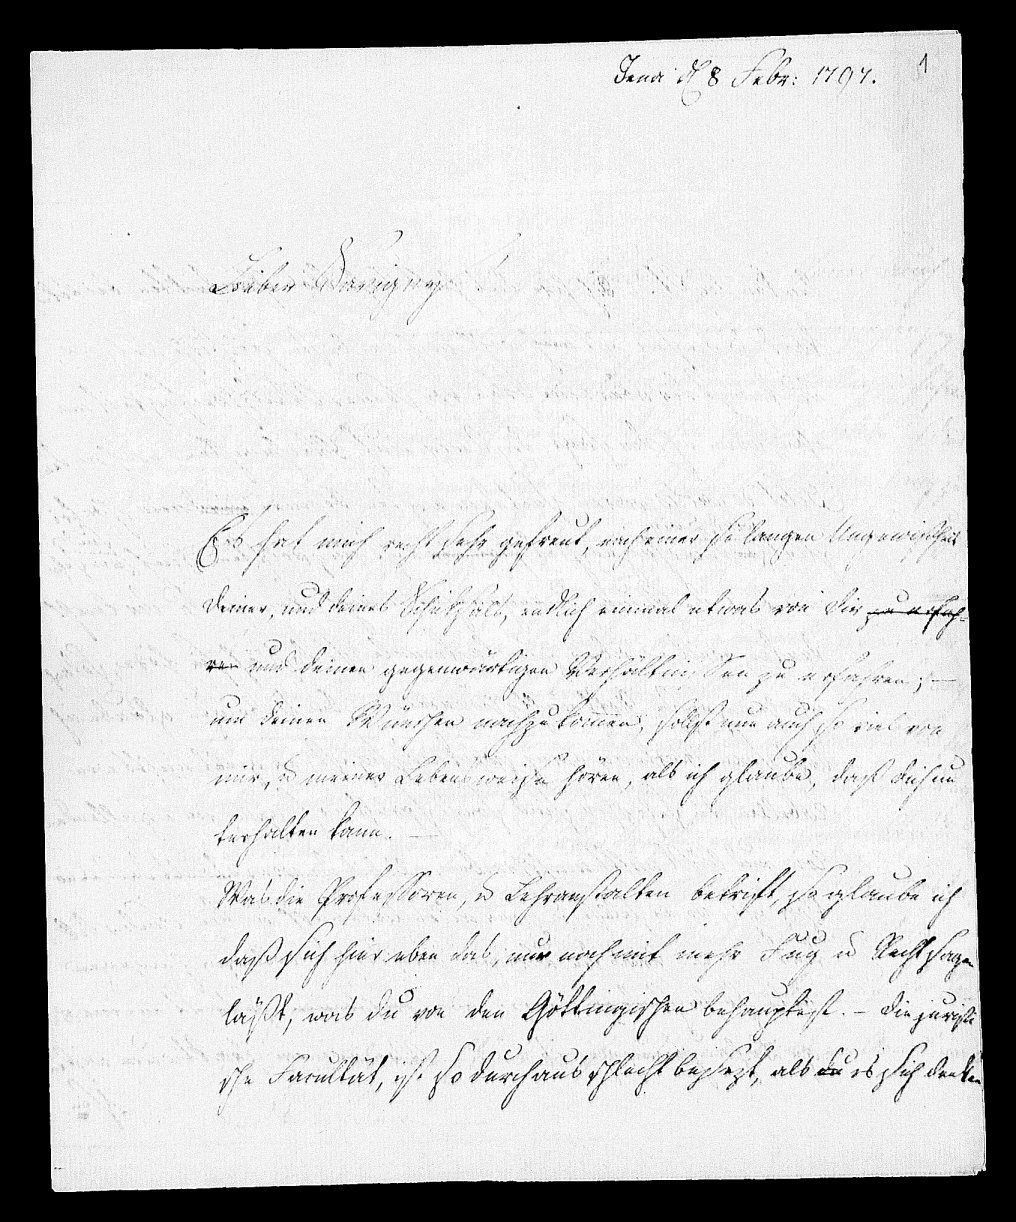 Jena d 8 Febr: 1797.
1
Lieber Savigny
Es hat mich recht sehr gefreut, nach einer so langen Ungewißheit
deiner, und deines Schiksals, endlich einmal etwas von dir zu erfah-
ren und deinen gegenwärtigen Verhältnissen zu erfahren; —
um deinen Wünschen nachzukomen, sollst nun auch so viel von
mir, u meiner Lebensweise hören, als ich glaube, daß dich un
terhalten kann. —
Was die Professoren, u Lehranstalten betrift, so glaube ich
daß sich hier eben das, nur noch mit mehr Fug u Recht sagen
läßt, was du von den Göttingischen behauptest. – Die juristi
sche Facultät, ist so durchaus schlecht besezt, als du es sich denken